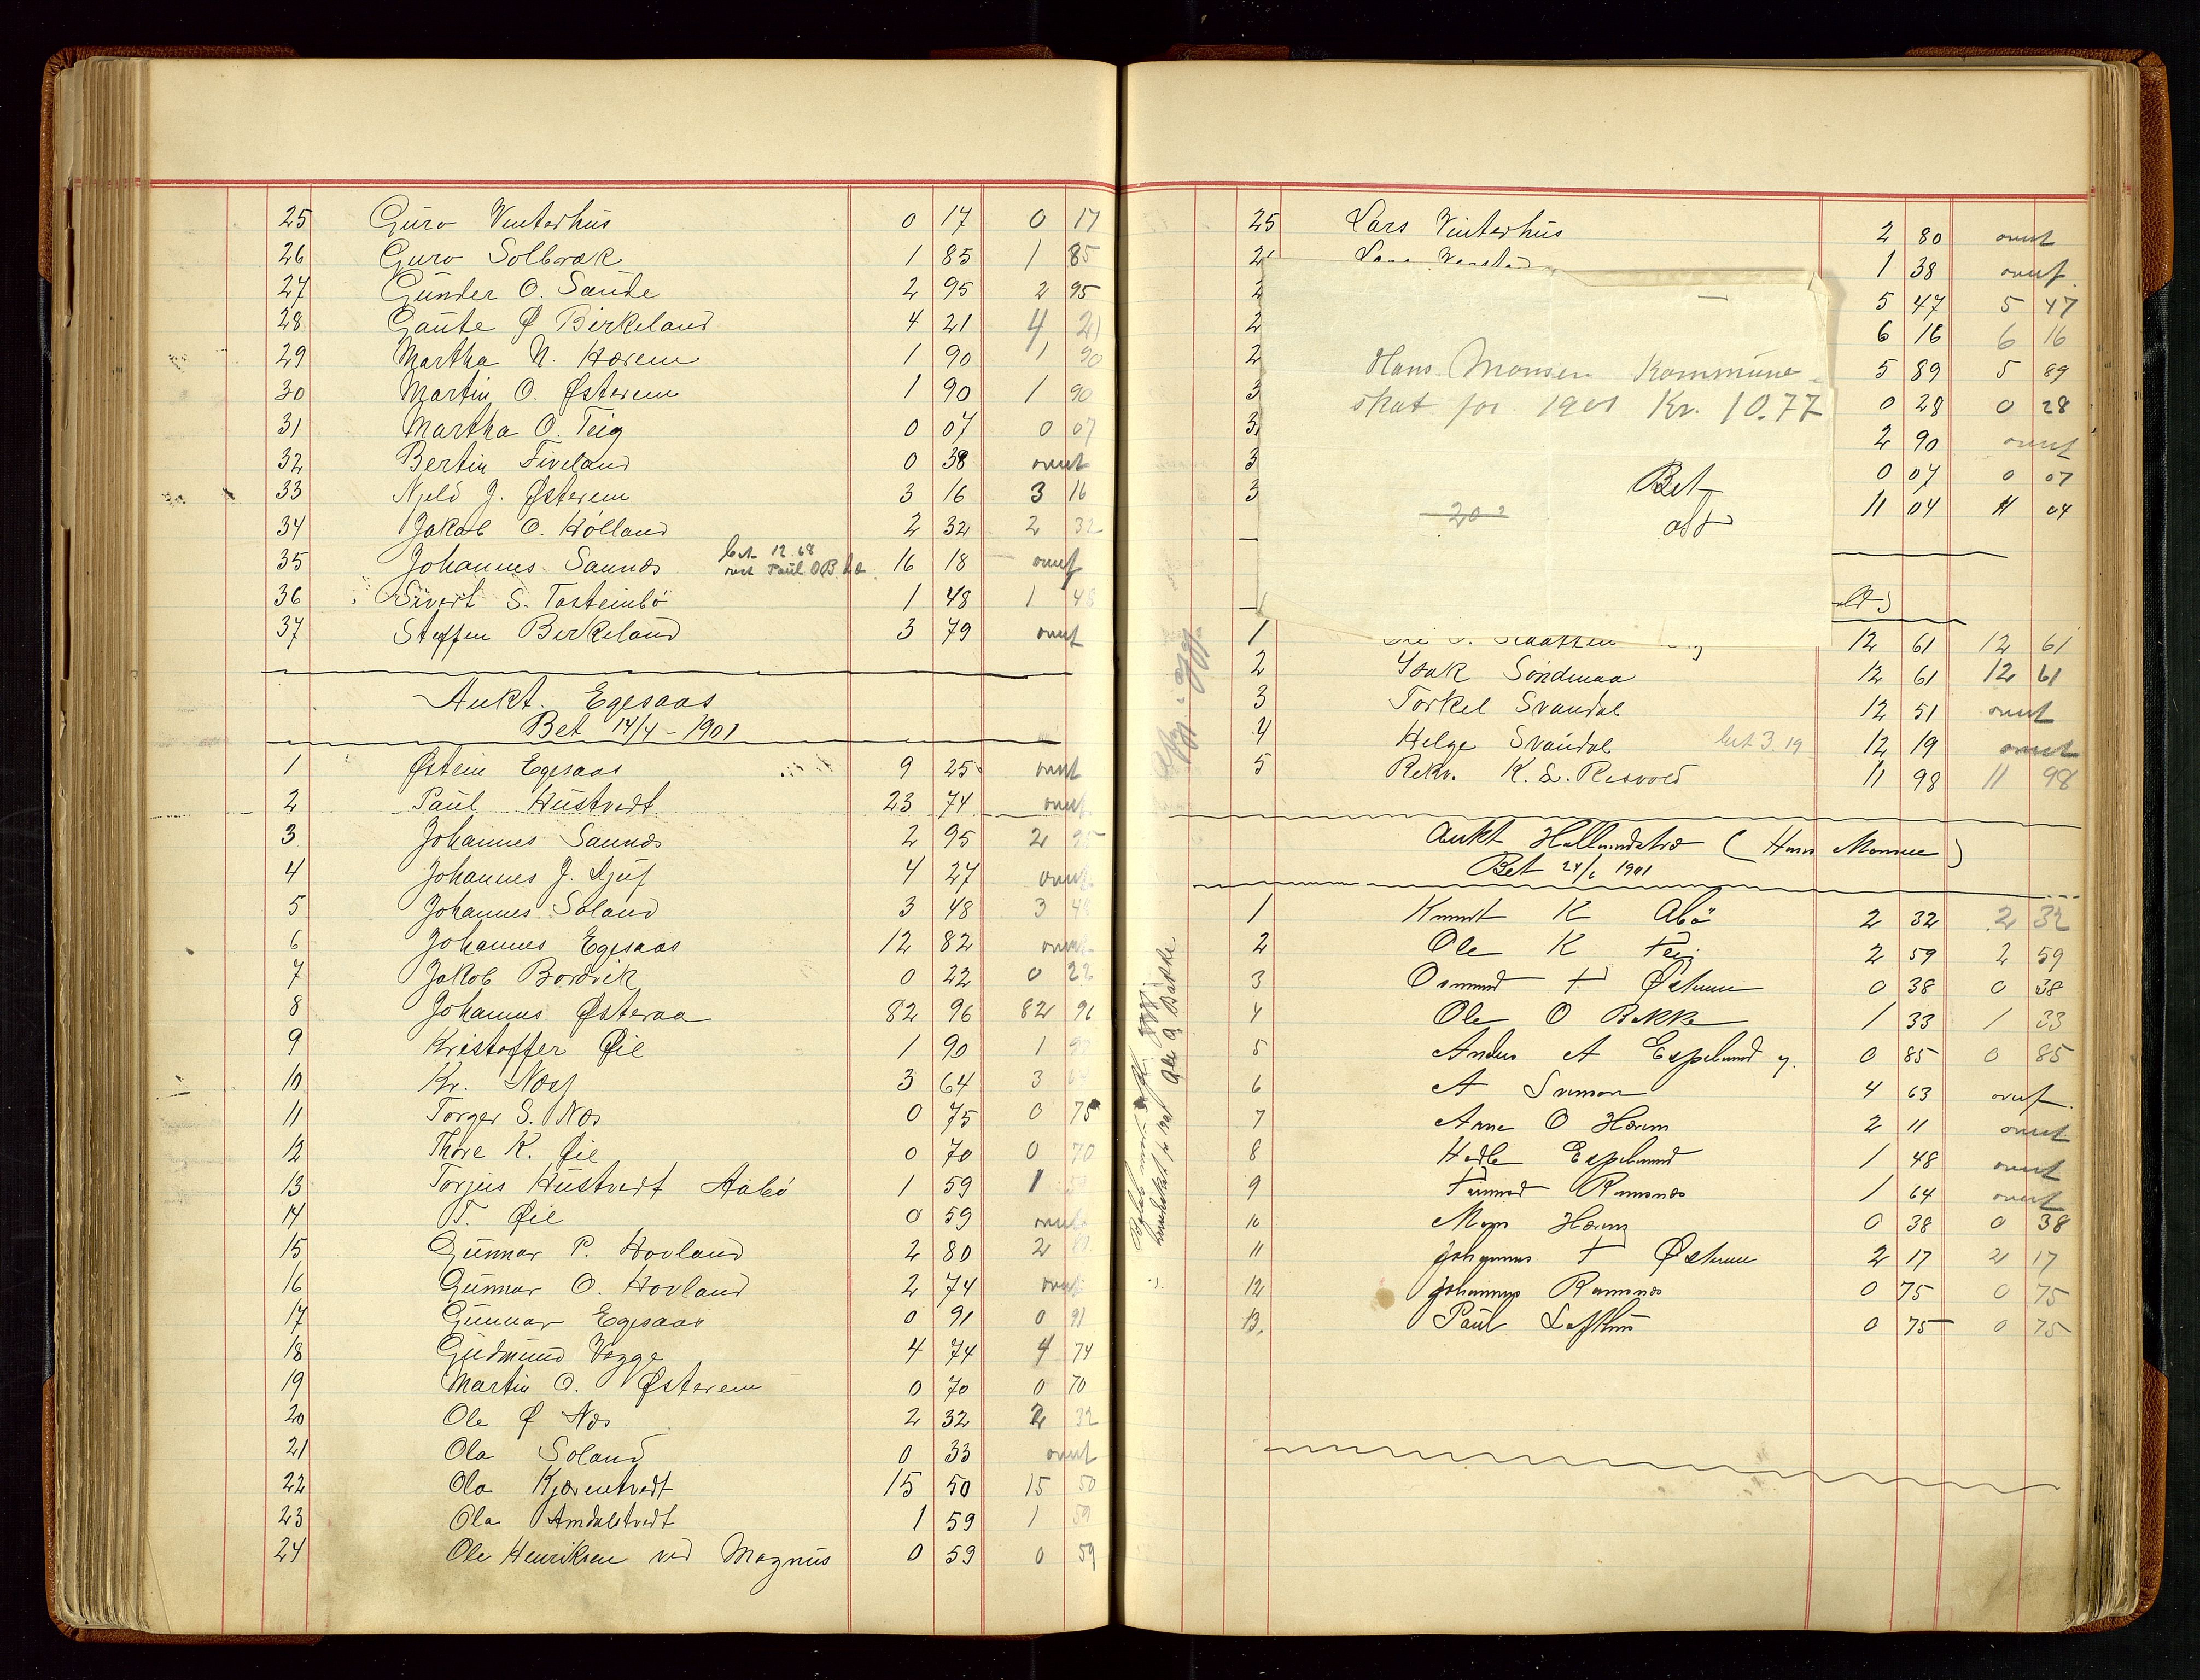 25 Guro Vinterhus 0 17 0 17
26 Guro Solbræk 1 85 1 85
27 Gunder O. Saude 2 95 2 95
28 Gaute Ø Birkeland 4 21 4 21
29 Martha N. Hærem 1 90 1 90
30 Martin O. Østerem 1 90 1 90
31 Martha O. Teig 0 07 0 07
32 Bertin Fiveland 0 38 ovnt
33 Njeld J. Østerem 3 16 3 16
34 Jakob O. Hølland 2 32 2 32
bet 12.68
35 Johannes Saunes rest Paul O B 16 18
36 Sivert S. Tasteinbø 1 48 1 48
37 Steffen Birkeland 3 79
Aukt. Egesaas
Bet 14/4 - 1901
1 Østein Egesaas 9 25
2 Paul Hustvedt 23 74
3 Johannes Saunes 2 95 2 95
4 Johannes J. 4 27
5 Johannes Soland 3 48 3 48
6 Johannes Egesaas 12 82
7 Jakob Bordvik 0 22 0 22
8 Johannes Østeraa 82 96 82 96
9 Kristoffer Øie 1 90 1 90
10 Kr. Næs 3 64 3 64
11 Torger S. Næs 0 75 0 75
12 Thore K. Øie 0 70 0 70
13 Torjus Hustvedt Aabø 1 59 1
14 T. Øie 0 59
15 Gunnar P. Hovland 2 80 2 80
16 Gunnar O. Hovland 2 74
17 Gunnar Egesaas 0 91 0 91
18 Gudmund Vagge 4 74 4 74
19 Martin O. Østerem 0 70 0 70
20 Ole Ø Næs 2 32 2 32
21 Ola Soland 0 33
22 Ola Kjærentvedt 15 50 15 50
23 Ola Amdalstvedt 1 59 1 59
24 Ole Henriksen ved Magnus 0 59 0 59
25 Lars Vinterhus 2 80
1 38
5 47 5 47
6 16 6 16
5 89 5 89
0 28 0 28
2 90
0 07 0 07
11 04 11 04
Hans Monsen Kommune-
skat for 1901 Kr. 10.77
Bet
1 12 61 12 61
2 Isak Søndenaa 12 61 12 61
3 Torkel Svandal 12 51
4 Helge Svandal bet 3.19 12 19
5 Rekv. K. S. Risvold 11 98 11 98
Aukt Hallandstræ (Hans Monsen)
Bet 24/6 1901
1 Knudt K Abø 2 32 2 32
2 Ole K Teig 2 59 2 59
3 Osmund T Østerem 0 38 0 38
4 Ole O Bakke 1 33 1 33
5 Anders A Espeland y. 0 85 0 85
6 A Svenson 4 63
7 Anne O Hærem 2 11
8 Helle Espeland 1 48
9 Ramsnes 1 64
10 Hærem 0 38 0 38
11 Johannes T Østerem 2 17 2 17
12 Johannes Ramsnes 0 75 0 75
13. Paul Lofthus 0 75 0 75